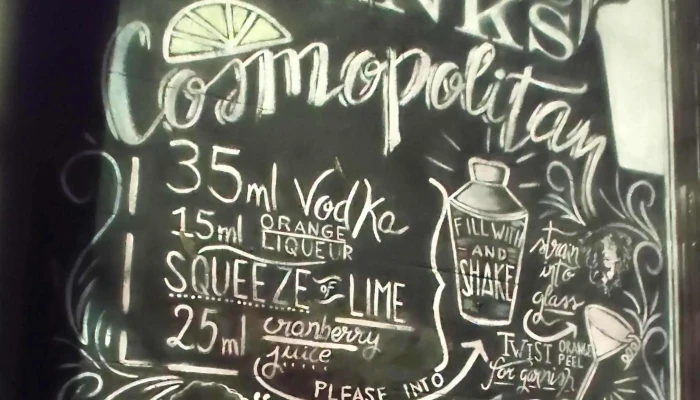 Cosmopolitan
35ml Vodka
15ml ORANGE
LIQUEUR
SQUEEZE OF LIME
25ml cranberry
juice
PLEASE INTO
FILL WITH
AND
SHAKE
strain
into
glass
TWIST ORANGE
PEEL
for garnish